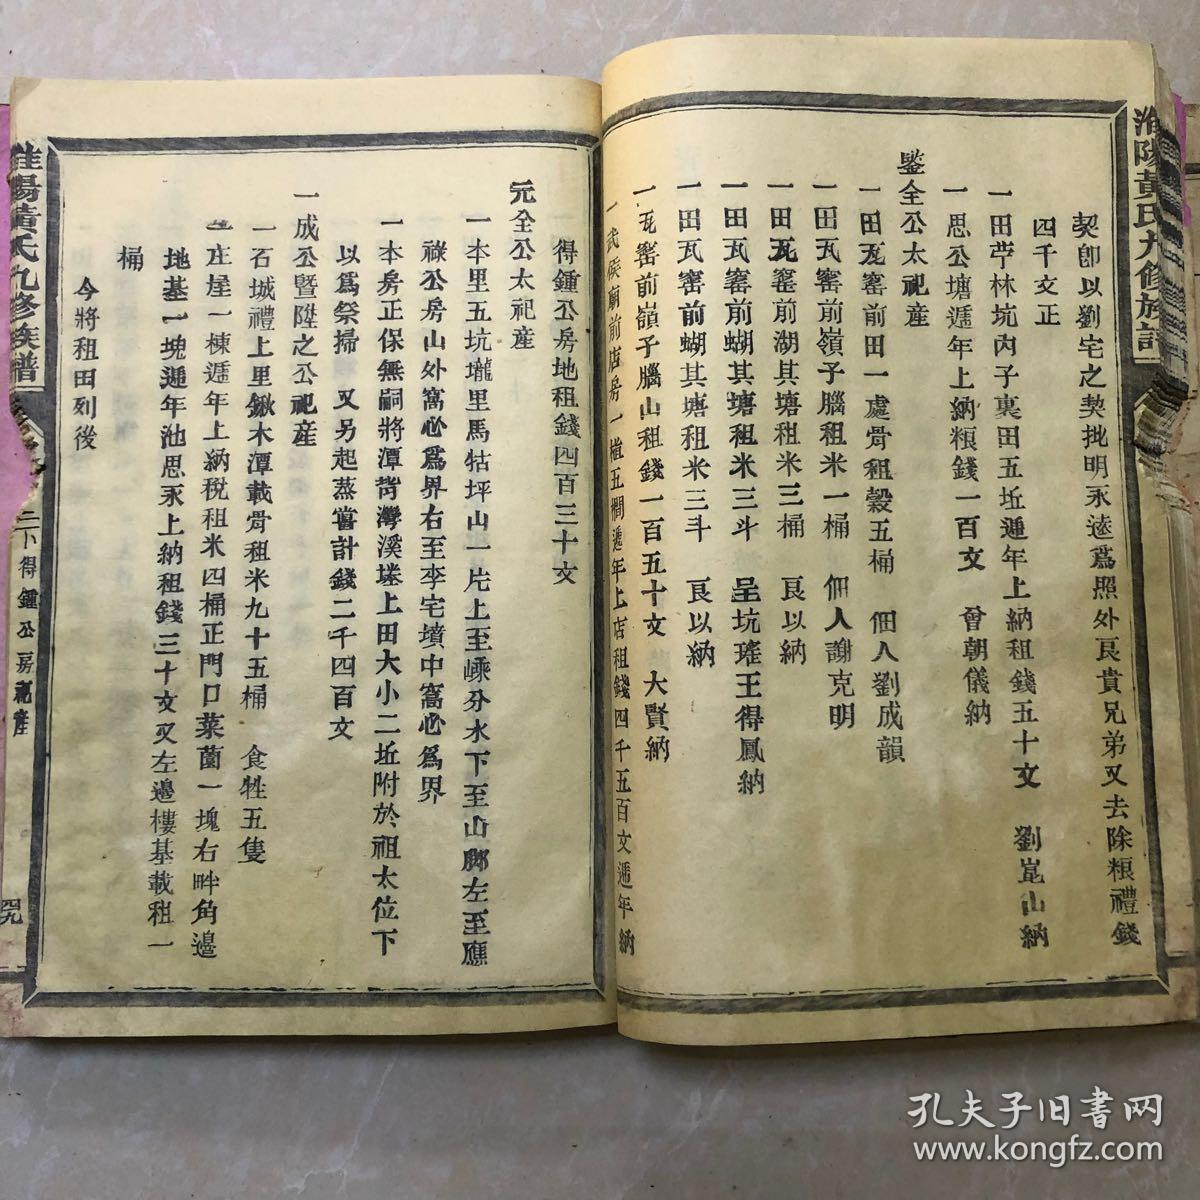 淮陽黃氏九修族譜
契卽以劉宅之契批明永遠爲照外艮貴兄弟又去除粮禮錢
四千文正
一田苧林坑內子裏田五坵遞年上納租錢五十文 劉崑山納
一思公塘遞年上納粮錢一百文 曾朝儀納
鑒全公太祀産
一田瓦窰前田一處骨租穀五桶 佃人劉成韻
一田瓦窰前嶺子腦租米一桶 佃人謝克明
一田瓦窰前湖其塘租米三桶 艮以納
一田瓦窰前蝴其塘租米三斗 呈坑琟王得鳳納
一田瓦窰前蝴其塘租米三斗 艮以納
一瓦窰前嶺子腦山租錢一百五十文 大賢納
一武侯廟前店房一植五櫚遞年上店租錢四千五百文遞年納
得鍾公房地租錢四百三十文
元全公太祀産
一本里五坑壠里馬牯坪山一片上至嵊分水下至山脚左至應
祿公房山外窩心爲界右至李宅墳中窩心爲界
一本房正保無嗣將潭背灣溪墘上田大小二坵附於祖太位下
以爲祭掃 又另起蒸嘗計錢二千四百文
一成公暨陞之公祀産
一石城禮上里鍬木潭載骨租米九十五桶 食牲五隻
庄屋一棟遞年上納稅租米四桶正門口菜薗一塊右畔角邊
地基一塊遞年池思永上納租錢三十文又左邊樓基載租一
桶
今將租田列後
陽黃氏九修族譜
得鍾公房祀産
四九
孔夫子旧书网
www.kongfz.com